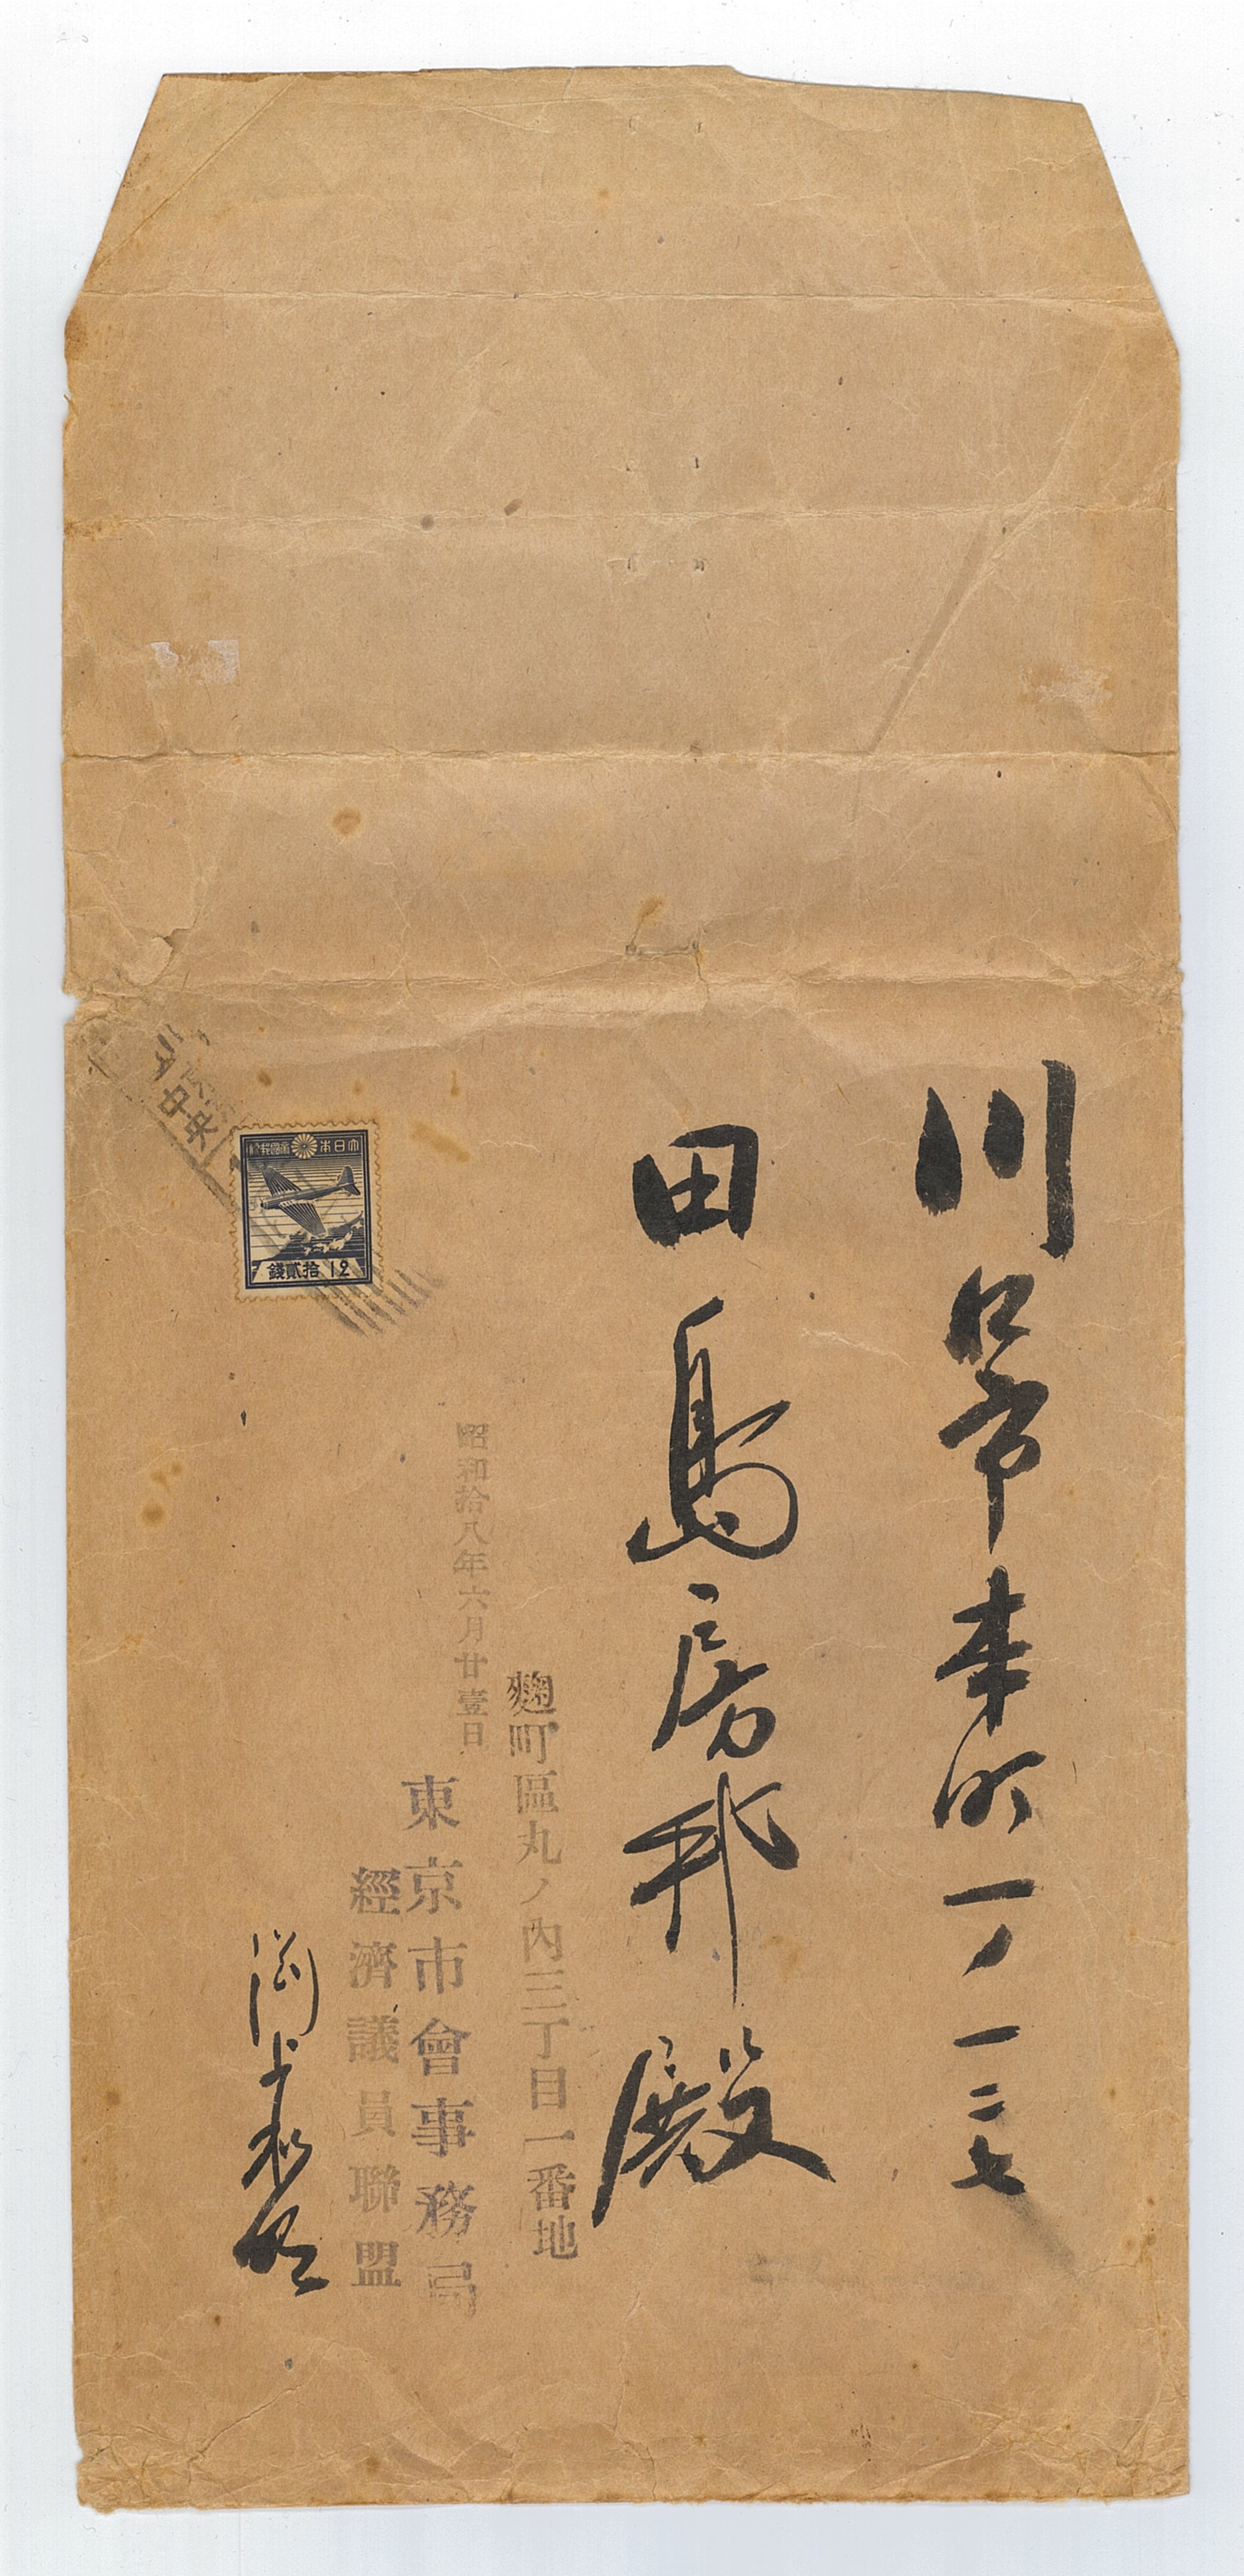 川口市本町一ノ一二七
田島房邦殿
麴町區丸ノ內三丁目一番地
昭和拾八年六月廿壹日
東京市會事務局
經濟議員聯盟
大日本帝國郵便
拾貳錢 12
中央